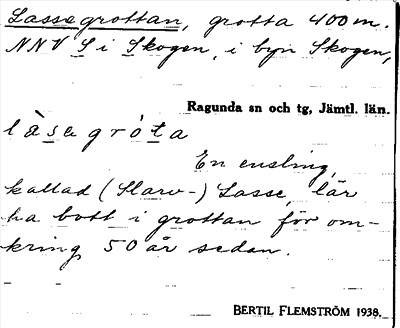 Lassegrottan, grotta 400 m.
NNV S i Skogen, i byn Skogen,
Ragunda sn och tg, Jämtl. län.
làsagròta
En ensling,
kallad (Slarv-) Lasse, lär
ha bott i grottan för om-
kring 50 år sedan.
BERTIL FLEMSTRÖM 1938.